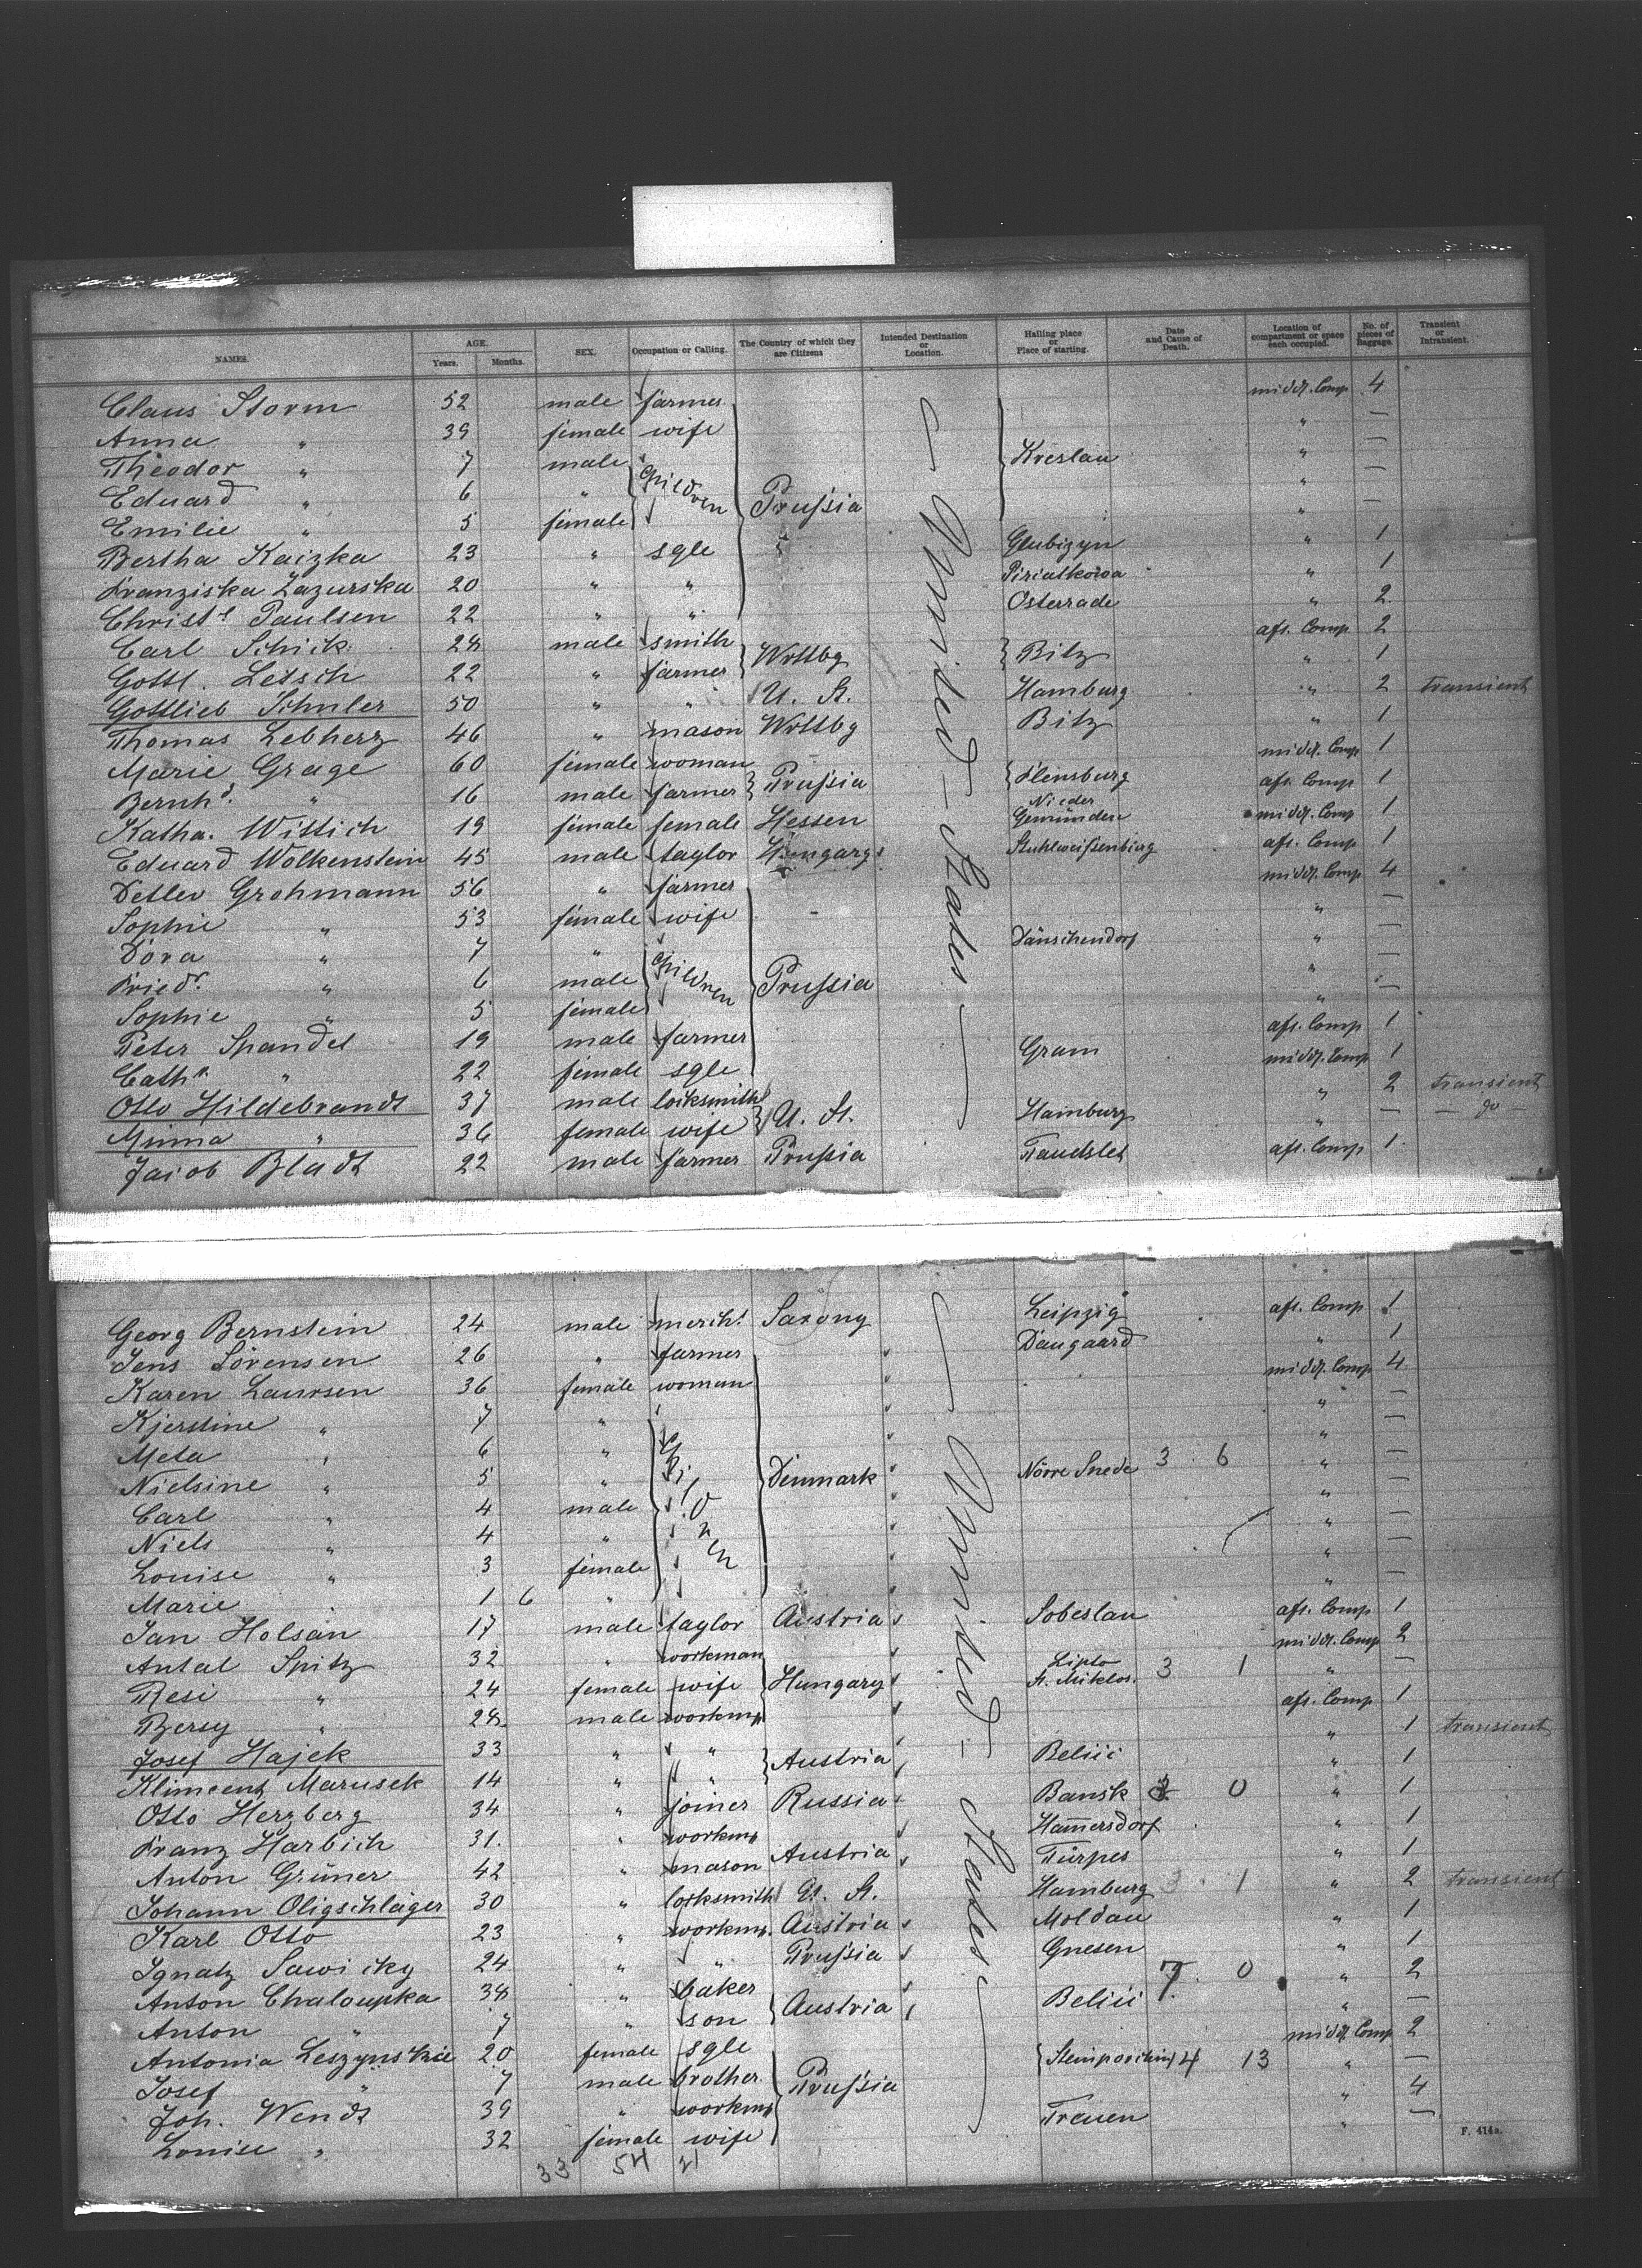 NAMES. AGE. Years. Months. SEX. Occupation or Calling. The Country of which they are Citizens Intended Destination or Location. Hailing place or Place of starting. Date and Cause of Death. Location of compartment or space each occupied. No. of pieces of Baggage. Transient or Intransient.
Claus Storm 52 male farmer middl. Comp 4
Anna " 39 female wife " —
Theodor " 7 male Children Kreslau " —
Eduard " 6 " " —
Emilie " 5 female Prussia " —
Bertha Kaizka 23 " sgle Glubizyn " 1
Franziska Zazurska 20 " " " 1
Christe Paulsen 22 " " Osterrade " 2
Carl Schick 28 male smith Wrttbg Bitz aft. Comp 2
Gottl. Letsch 22 " farmer " 1
Gottlieb Schuler 50 " " U. St. Hamburg " 2 transient
Thomas Lebherz 46 " mason Wrttbg Bitz " 1
Marie Grage 60 female woman Prussia Flensburg middl. Comp 1
Bernhd. " 16 male farmer aft. Comp 1
Katha. Wittich 19 female female Hessen Nieder Gemünden middl. Comp 1
Eduard Wolkenstein 45 male taylor Hungary Stuhlweissenburg aft. Comp 1
Detlev Grohmann 56 " farmer middl. Comp 4
Sophie " 53 female wife " —
Dora " 7 " Children Dänschendorf " —
Friedr. " 6 male Prussia " —
Sophie " 5 female " —
Peter Spandet 19 male farmer Gram aft. Comp 1
Cath. " 22 female sgle middl. Comp 1
Otto Hildebrandt 37 male locksmith U. St. Hamburg " 2 transient
Minna " 36 female wife " — do
Jacob Bladt 22 male farmer Prussia Taudslet aft. Comp 1
— United — States —
Georg Bernstein 24 male mercht Saxony Leipzig aft. Comp 1
Jens Sörensen 26 " farmer Daugaard " 1
Karen Laursen 36 female woman middl. Comp 4
Kjerstine " 7 " Children " —
Meta " 6 " " —
Nielsine " 5 " Denmark Nörre Snede 3 6 " —
Carl " 4 male " —
Niels " 4 " " —
Louise " 3 female " —
Marie " 1 6 " " —
Jan Holsan 17 male taylor Austria Sobeslau aft. Comp 1
Antal Spitz 32 " workman middl. Comp 2
Resi " 24 female wife Hungary Lipto St. Miklos. 3 1 " —
Bersy " 28 male workmn aft. Comp 1
Josef Hajek 33 " " Austria " 1 transient
Klimcent Marusek 14 " " Belici " 1
Otto Herzberg 34 " joiner Russia Bausk 0 " 1
Franz Harbich 31. " workmn Austria Hamersdorf " 1
Anton Grüner 42 " mason Türpes " 1
Johann Oligschläger 30 " locksmith U. St. Hamburg 3 1 " 2 transient
Karl Otto 23 " workmn. Austria Moldau " 1
Ignatz Sawicky 24 " " Prussia Gnesen " 1
Anton Chaloupka 38 " baker Austria Belici 7. 0 " 2
Anton " 7 " son " —
Antonia Leszynskie 20 female sgle Prussia 4 13 middl. Comp 2
Josef " 7 male brother " —
Joh. Wendt 39 " workmn Treuen " 4
Louise " 32 female wife " —
— United — States —
33 54 21
F. 414a.